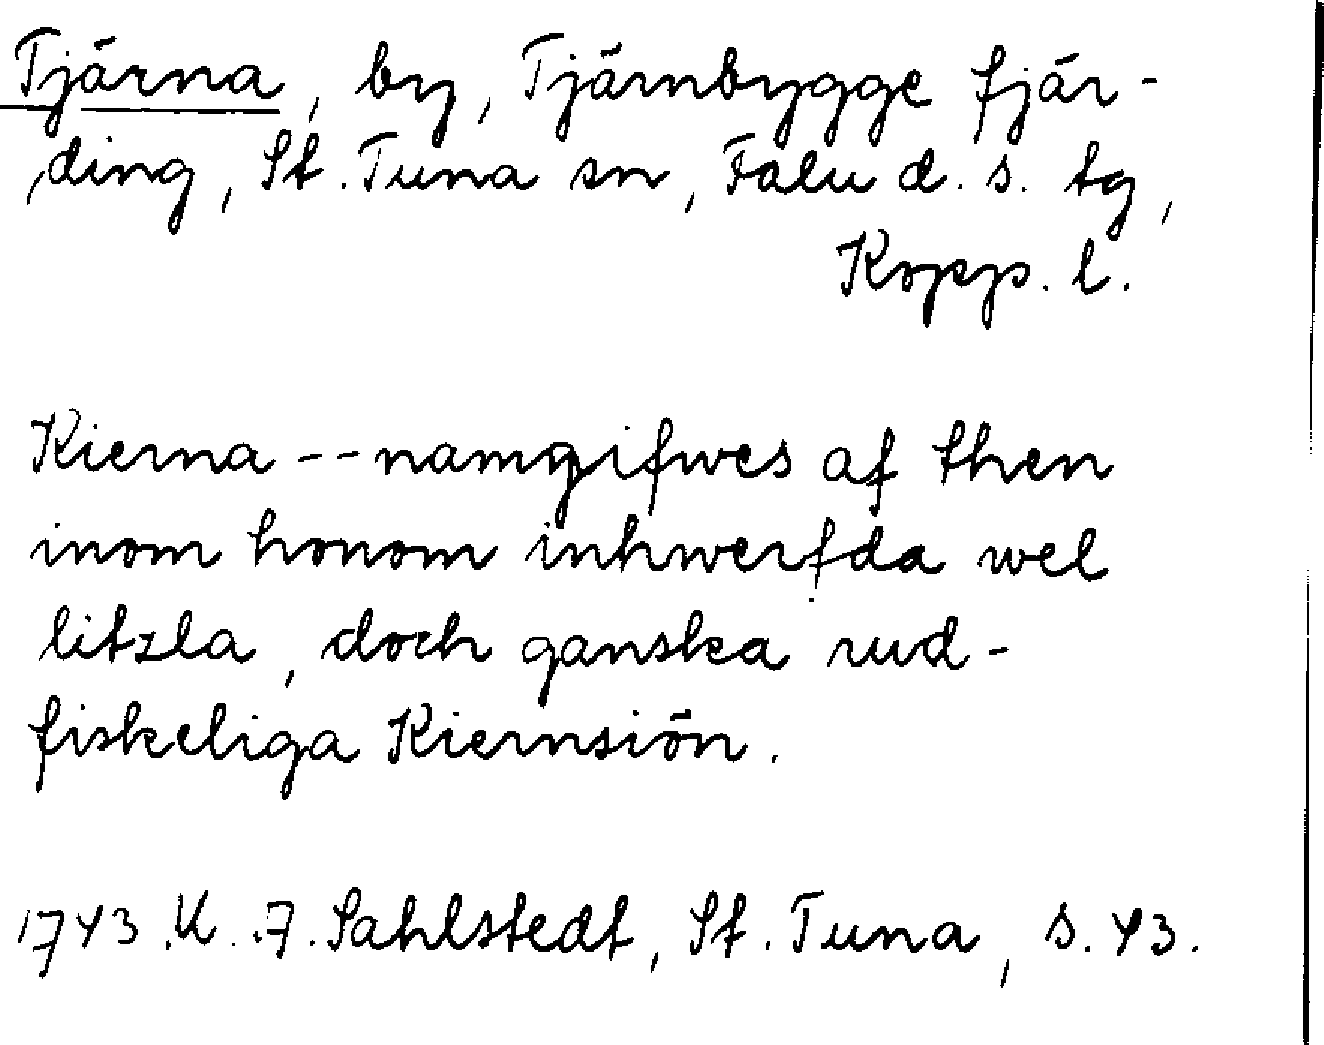 Tjärna, by, Tjärnbygge fjär-
ding, St. Tuna sn, Falu d. s. tg,
Kopp. l.
Kierna -- namngifwes af then
inom honom inhwerfda wel
litzla, doch ganska rud-
fiskeliga Kiernsiön.
1743. U. A. Sahlstedt, St. Tuna, s. 43.